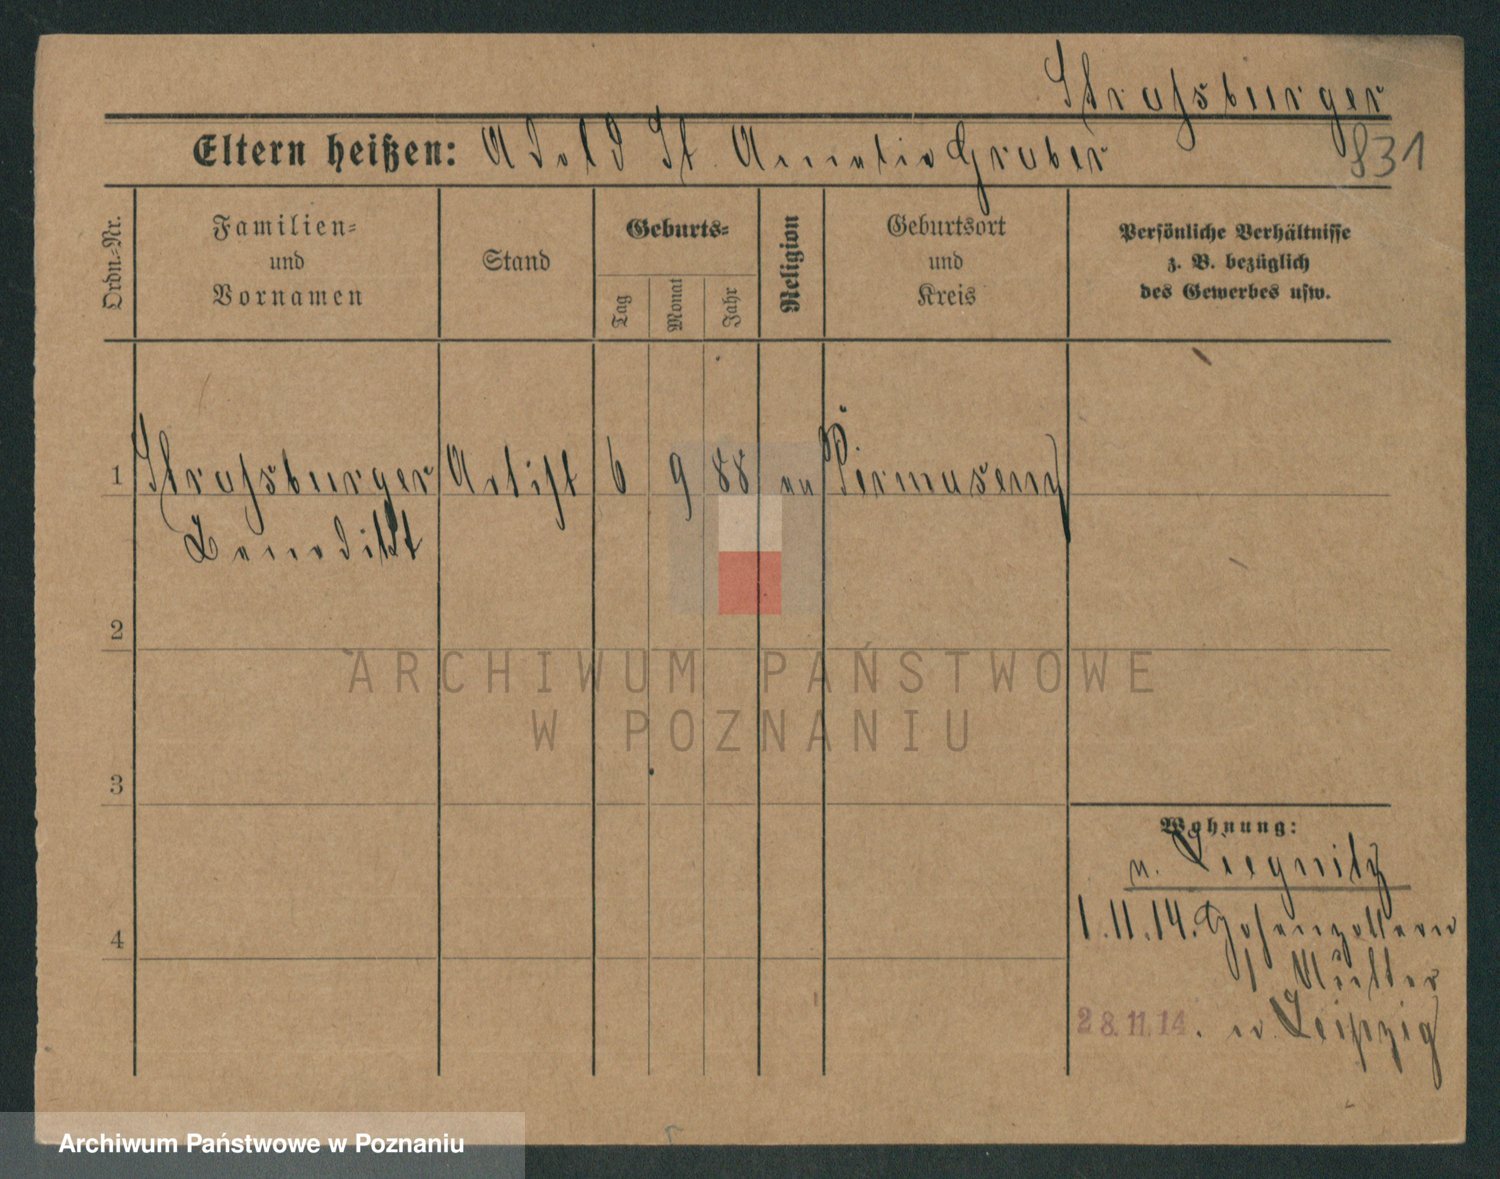 Strassburger
831
Eltern heißen: Adolf St. Amalie Gruber
Ordn.-Nr.
Familien-
und
Vornamen
Stand
Geburts-
Tag
Monat
Jahr
Religion
Geburtsort
und
Kreis
Persönliche Verhältnisse
z. B. bezüglich
des Gewerbes usw.
1 Strassburger Artist 6 9 88 ev Pirmasens
Benedikt
2
3
4
Wohnung:
v. Liegnitz
1.11.14. Hohenzollern
28.11.14. n. Leipzig
ARCHIWUM PAŃSTWOWE
W POZNANIU
Archiwum Państwowe w Poznaniu